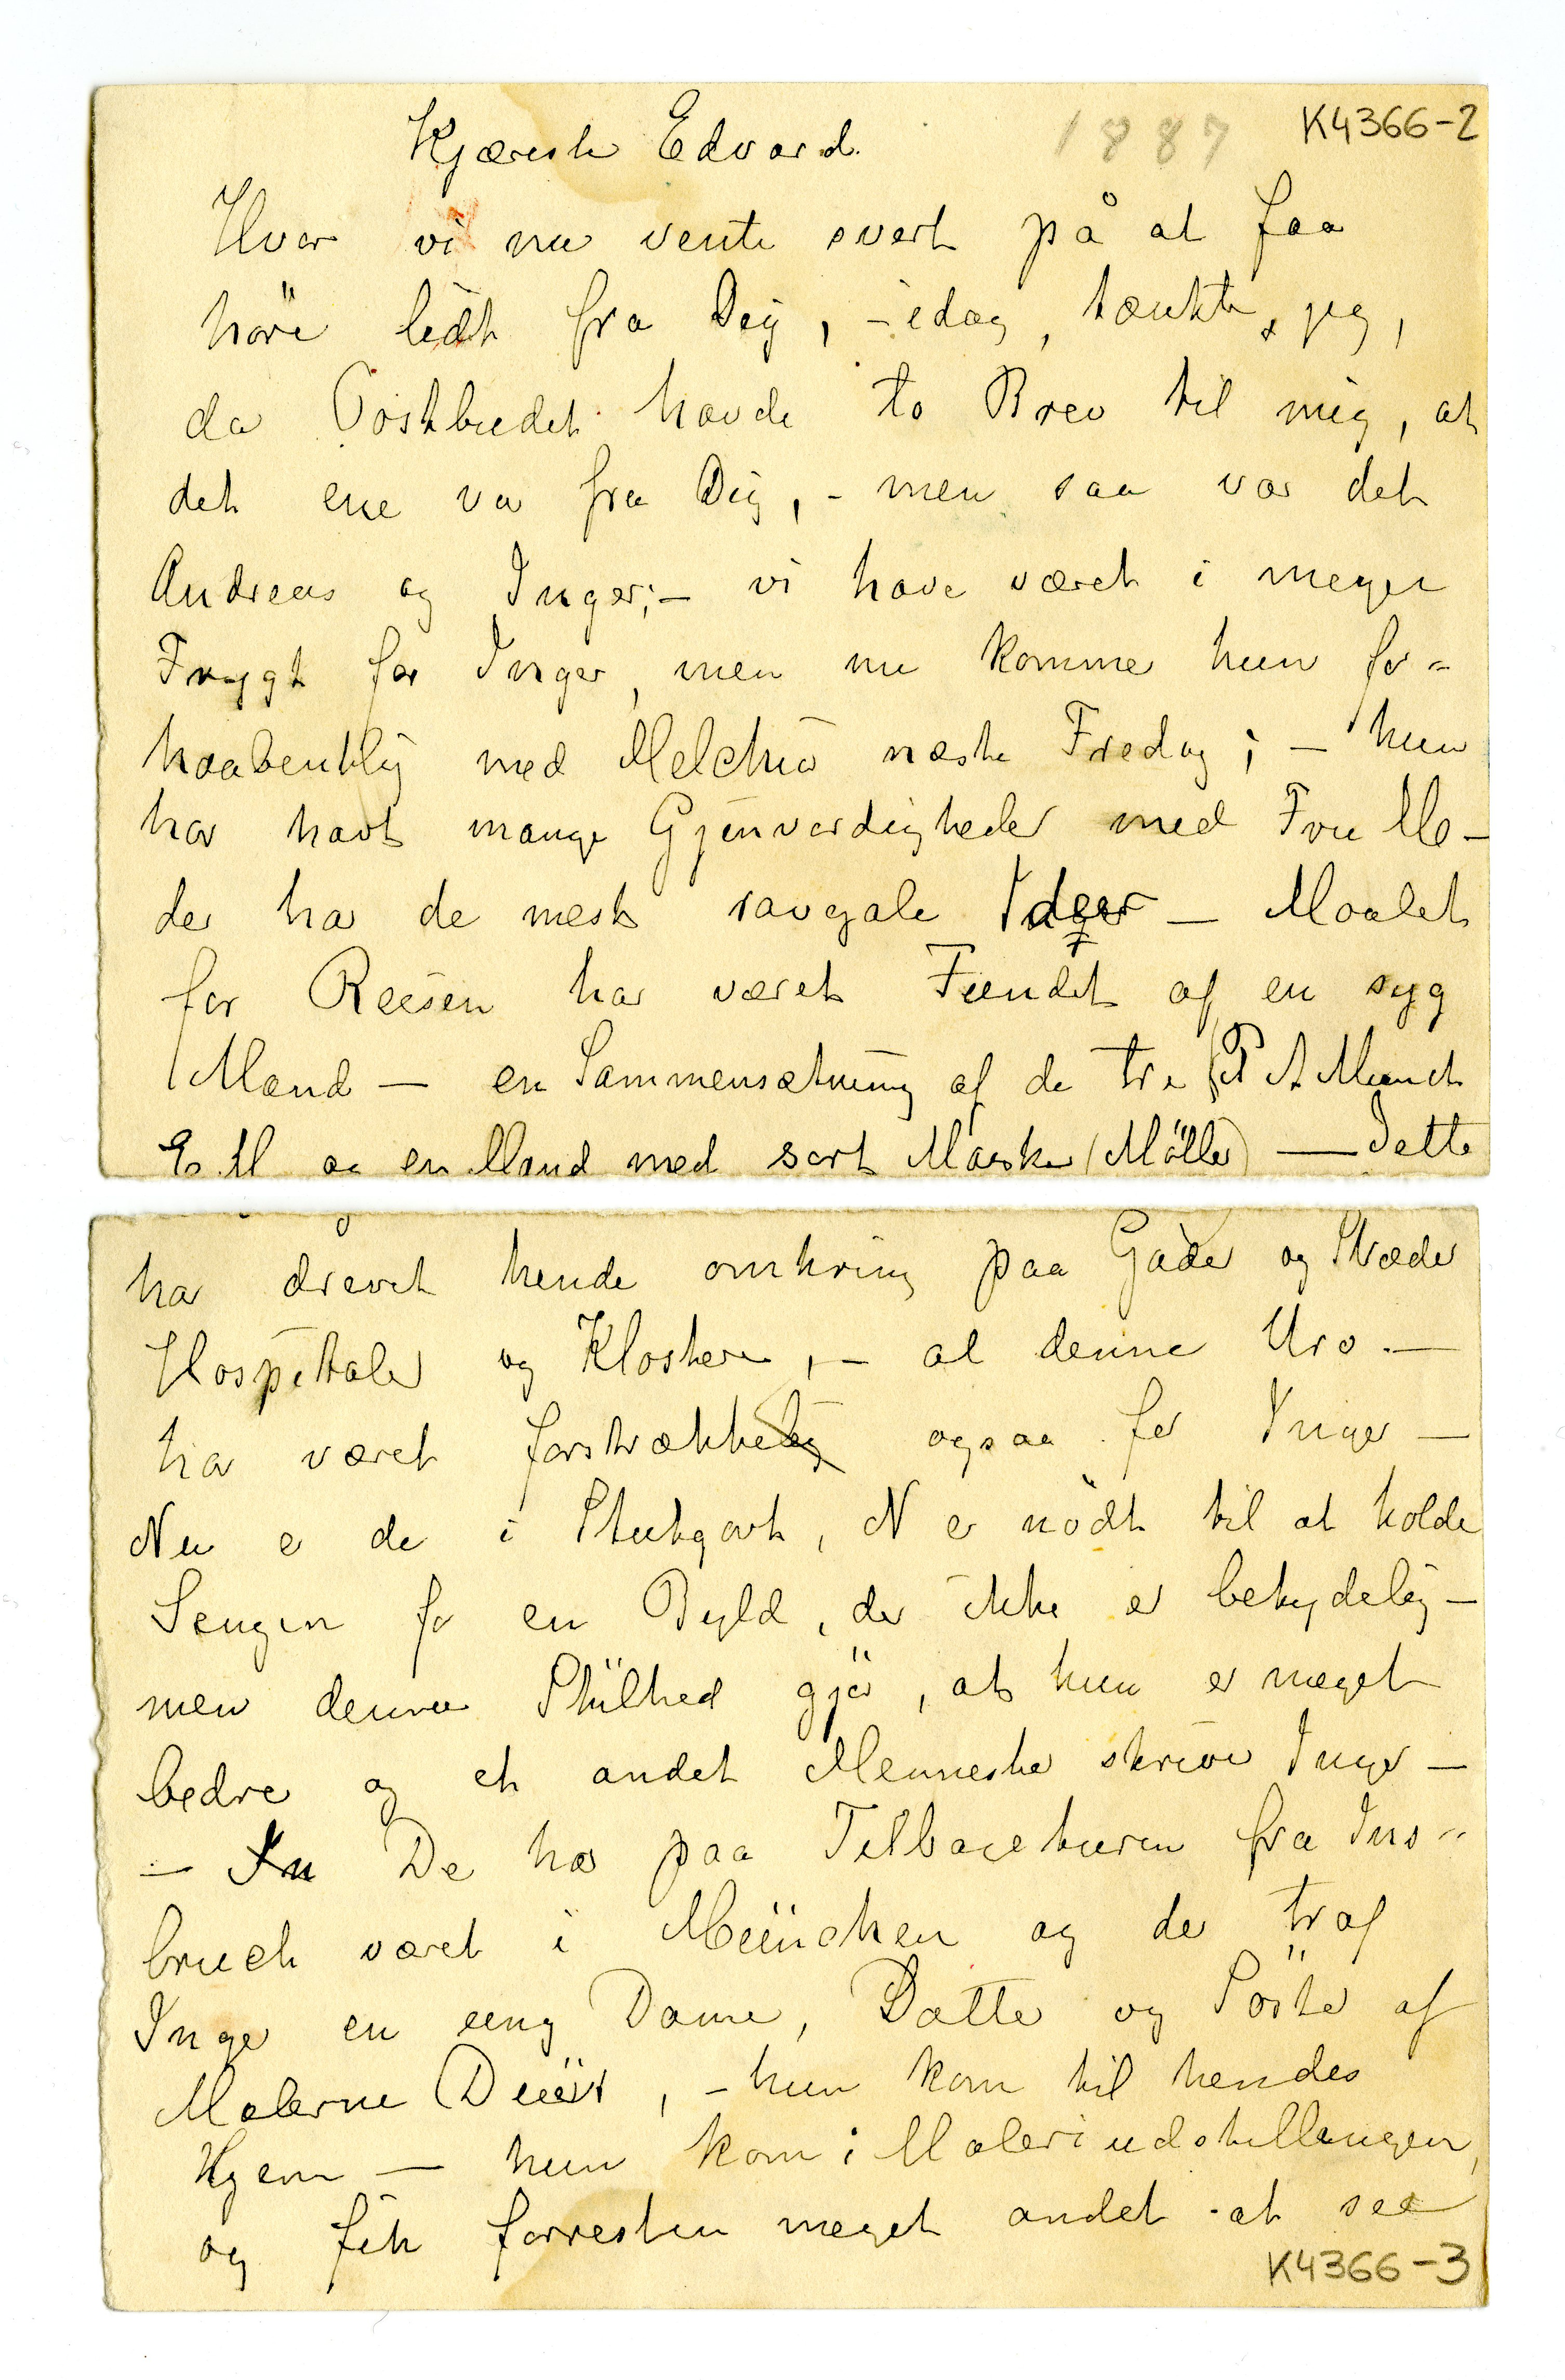 Kjæreste Edvard. 1887 K4366-2
Hvor vi nu vente svert på at faa
höre lidt fra Dig, - idag, tænkte jeg,
da Postbudet havde to Brev til mig, at
det ene var fra Dig, - men saa var det
Andreas og Inger; - vi have været i megen
Frygt for Inger, men nu kommer hun for-
haabentlig med Melchior næste Fredag; - hun
har havt mange Gjenvordigheder med Fru M -
der har de mest ravgale Ideer - Maalet
for Reisen har været Fundet af en syg
Mand - en Sammensætning af de tre (P A Munch
E. M og en Mand med sort Maske (Möller) - Dette
har drevet hende omkring paa Gader og Stræder
Hospitaler og Klostere, - al denne Uro. -
har været forstrækkelig ogsaa for Inger -
Nu er de i Stutgart, N er nödt til at holde
Sengen for en Byld, der ikke er betydelig -
men denne Stilhed gjör, at hun er meget
bedre og et andet Menneske skriver Inger -
- In De har paa Tilbageturen fra Ins-
bruck været i München og der traf
Inger en ung Dame, Datter og Söster af
Malerne Duürr, - hun kom til hendes
Hjem - hun kom i Maleriudstillingen,
og fik forresten meget andet at see
K4366-3